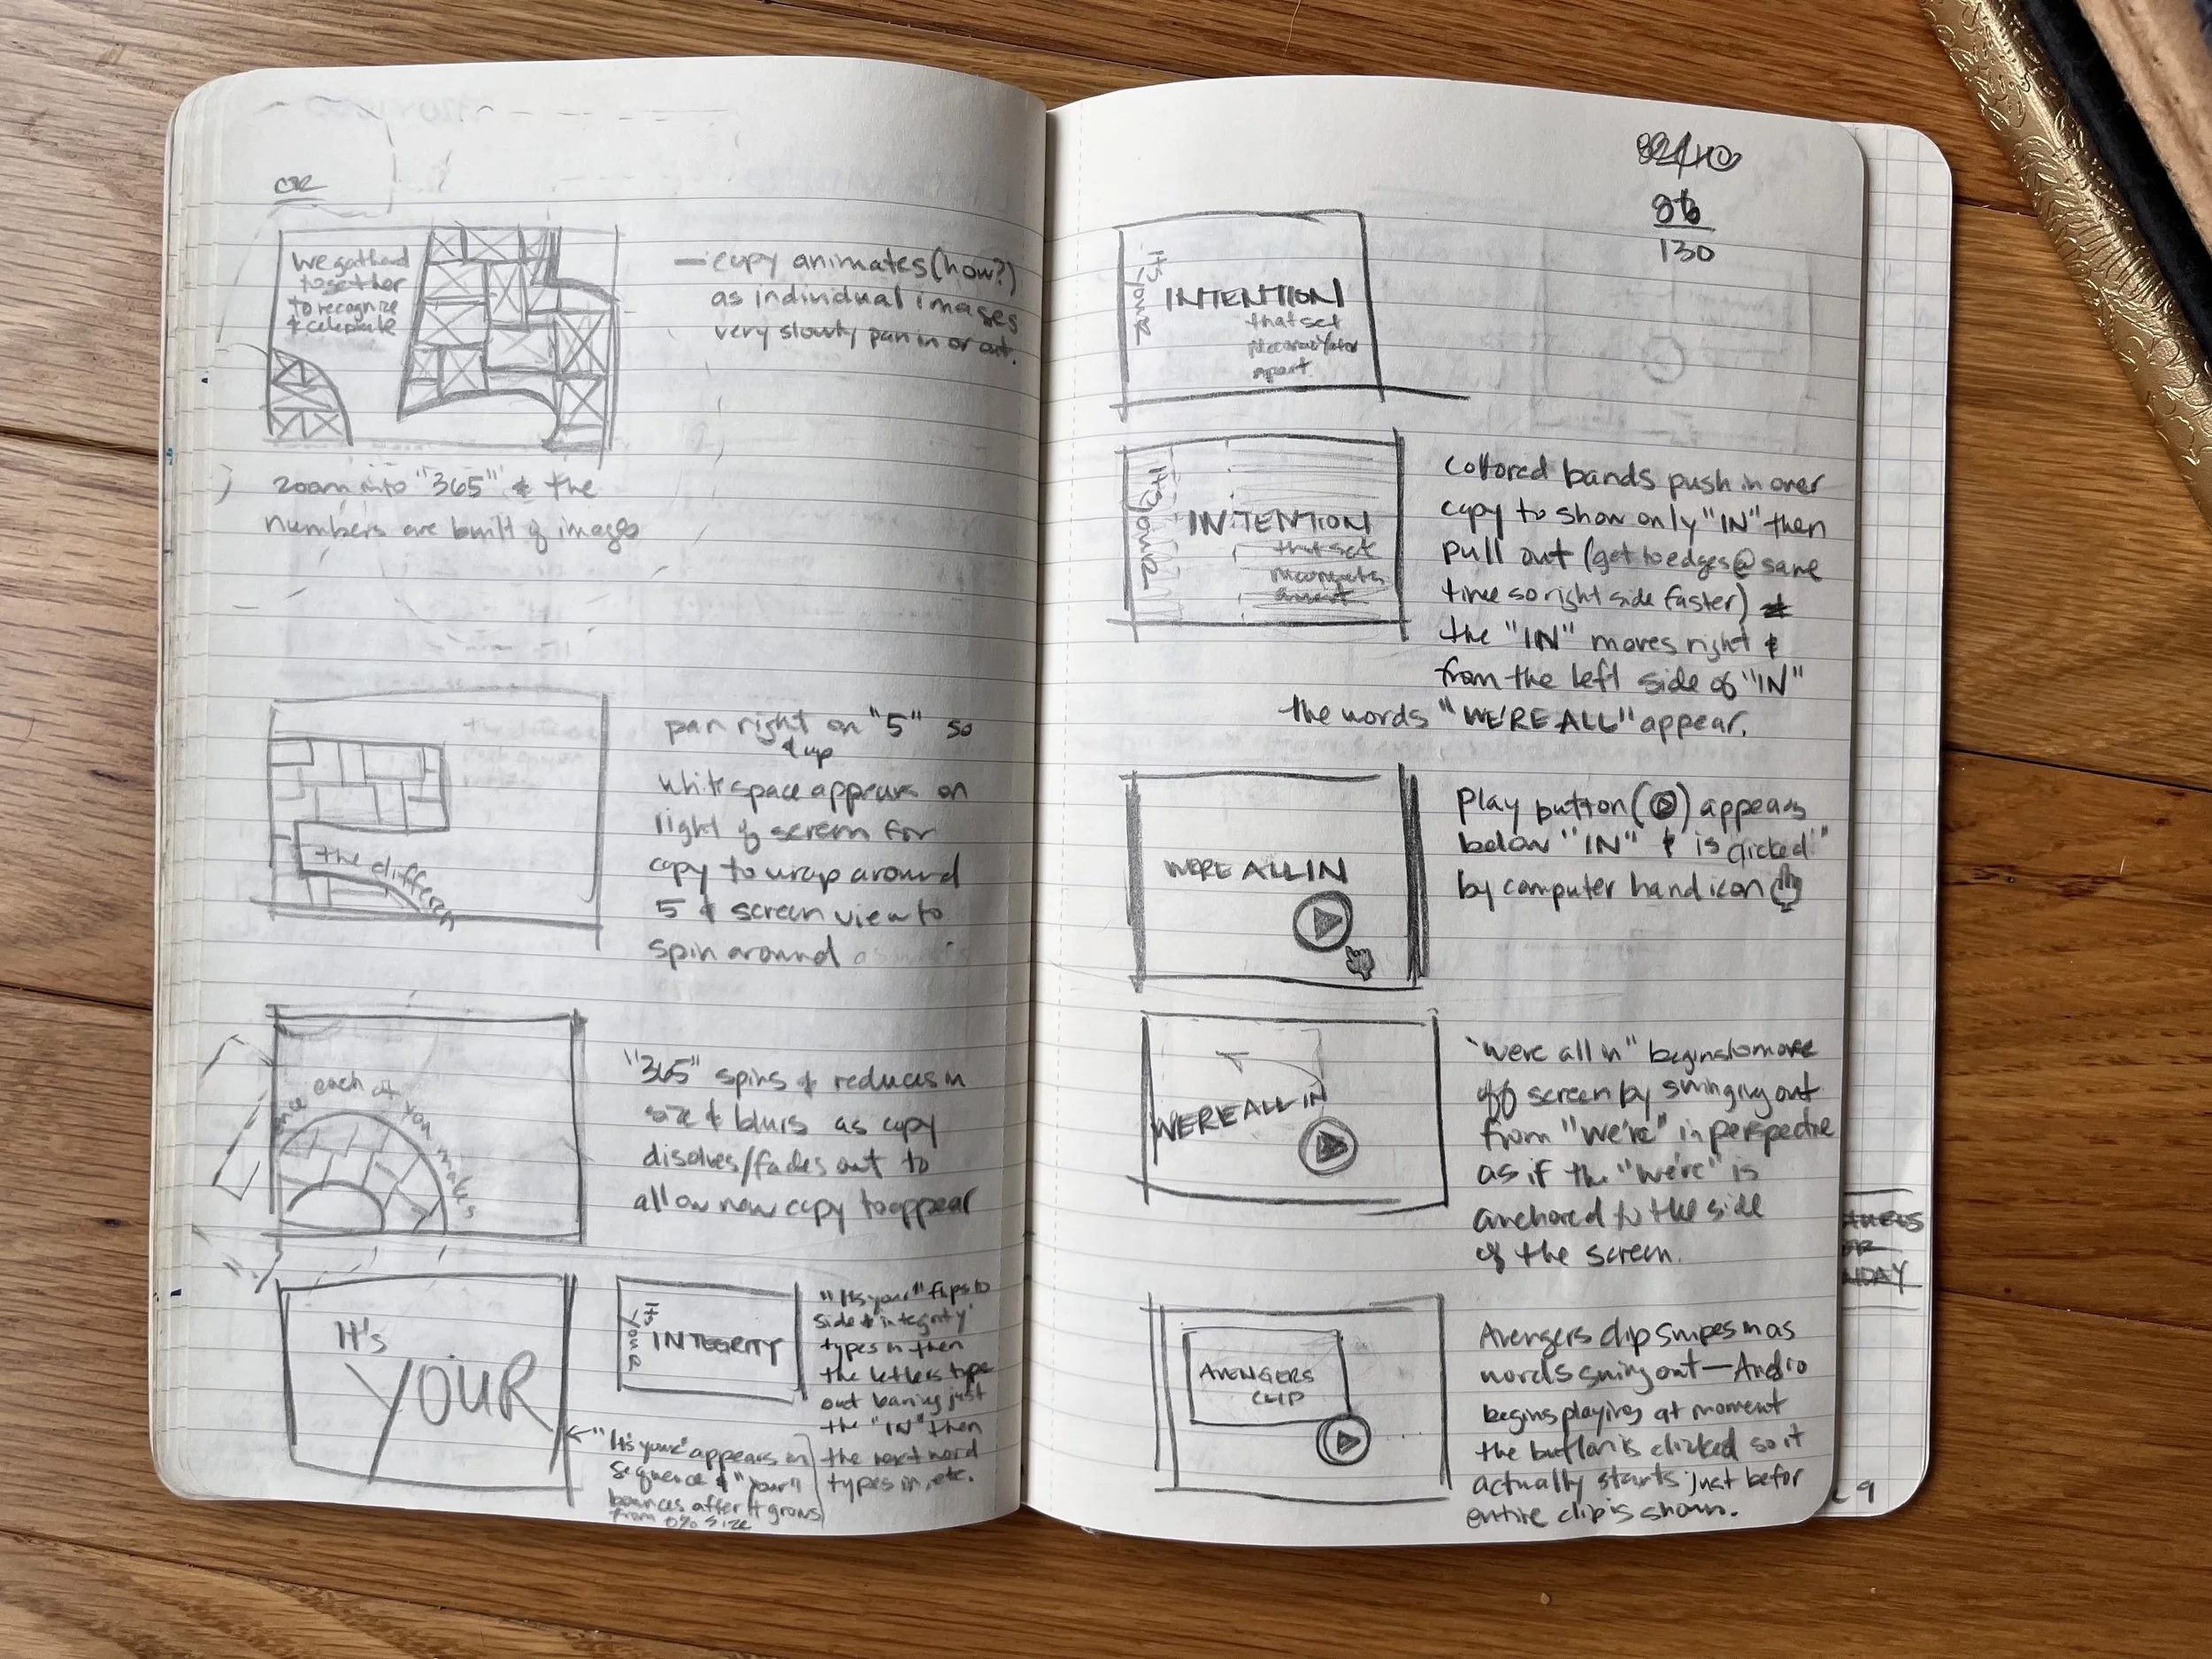 OR
We gathered
together
to recognize
& celebrate
— copy animates (how?)
as individual images
very slowly pan in or out.
zoom into "365" & the
numbers are built of images
the differen
pan right on "5" so
& up
white space appears on
right of screen for
copy to wrap around
5 & screen view to
spin around
each of you makes
"365" spins & reduces in
size & blurs as copy
disolves/fades out to
allow new copy to appear
It's
YOUR
It's
your
INTEGRITY
"It's your" flips to
side & "integrity"
types in then
the letters type
out baring just
the "IN" then
the next word
types in, etc.
← "It's your" appears in
sequence & "your"
bounces after it grows
from 0% size
130
It's your
INTENTION
that set
apart
It's your
INTENTION
that set
Collored bands push in over
copy to show only "IN" then
pull out (get to edges @ same
time so right side faster) &
the "IN" moves right &
from the left side of "IN"
the words "WE'RE ALL" appear.
WERE ALL IN
Play button (▷) appears
below "IN" & "is clicked"
by computer hand icon
WERE ALL IN
"were all in" begins to move
off screen by swinging out
from "we're" in perspective
as if the "we're" is
anchored to the side
of the screen.
AVENGERS
CLIP
Avengers clip swipes in as
words swing out — Audio
begins playing at moment
the button is clicked so it
actually starts just befor
entire clip is shown.
NDAY
9